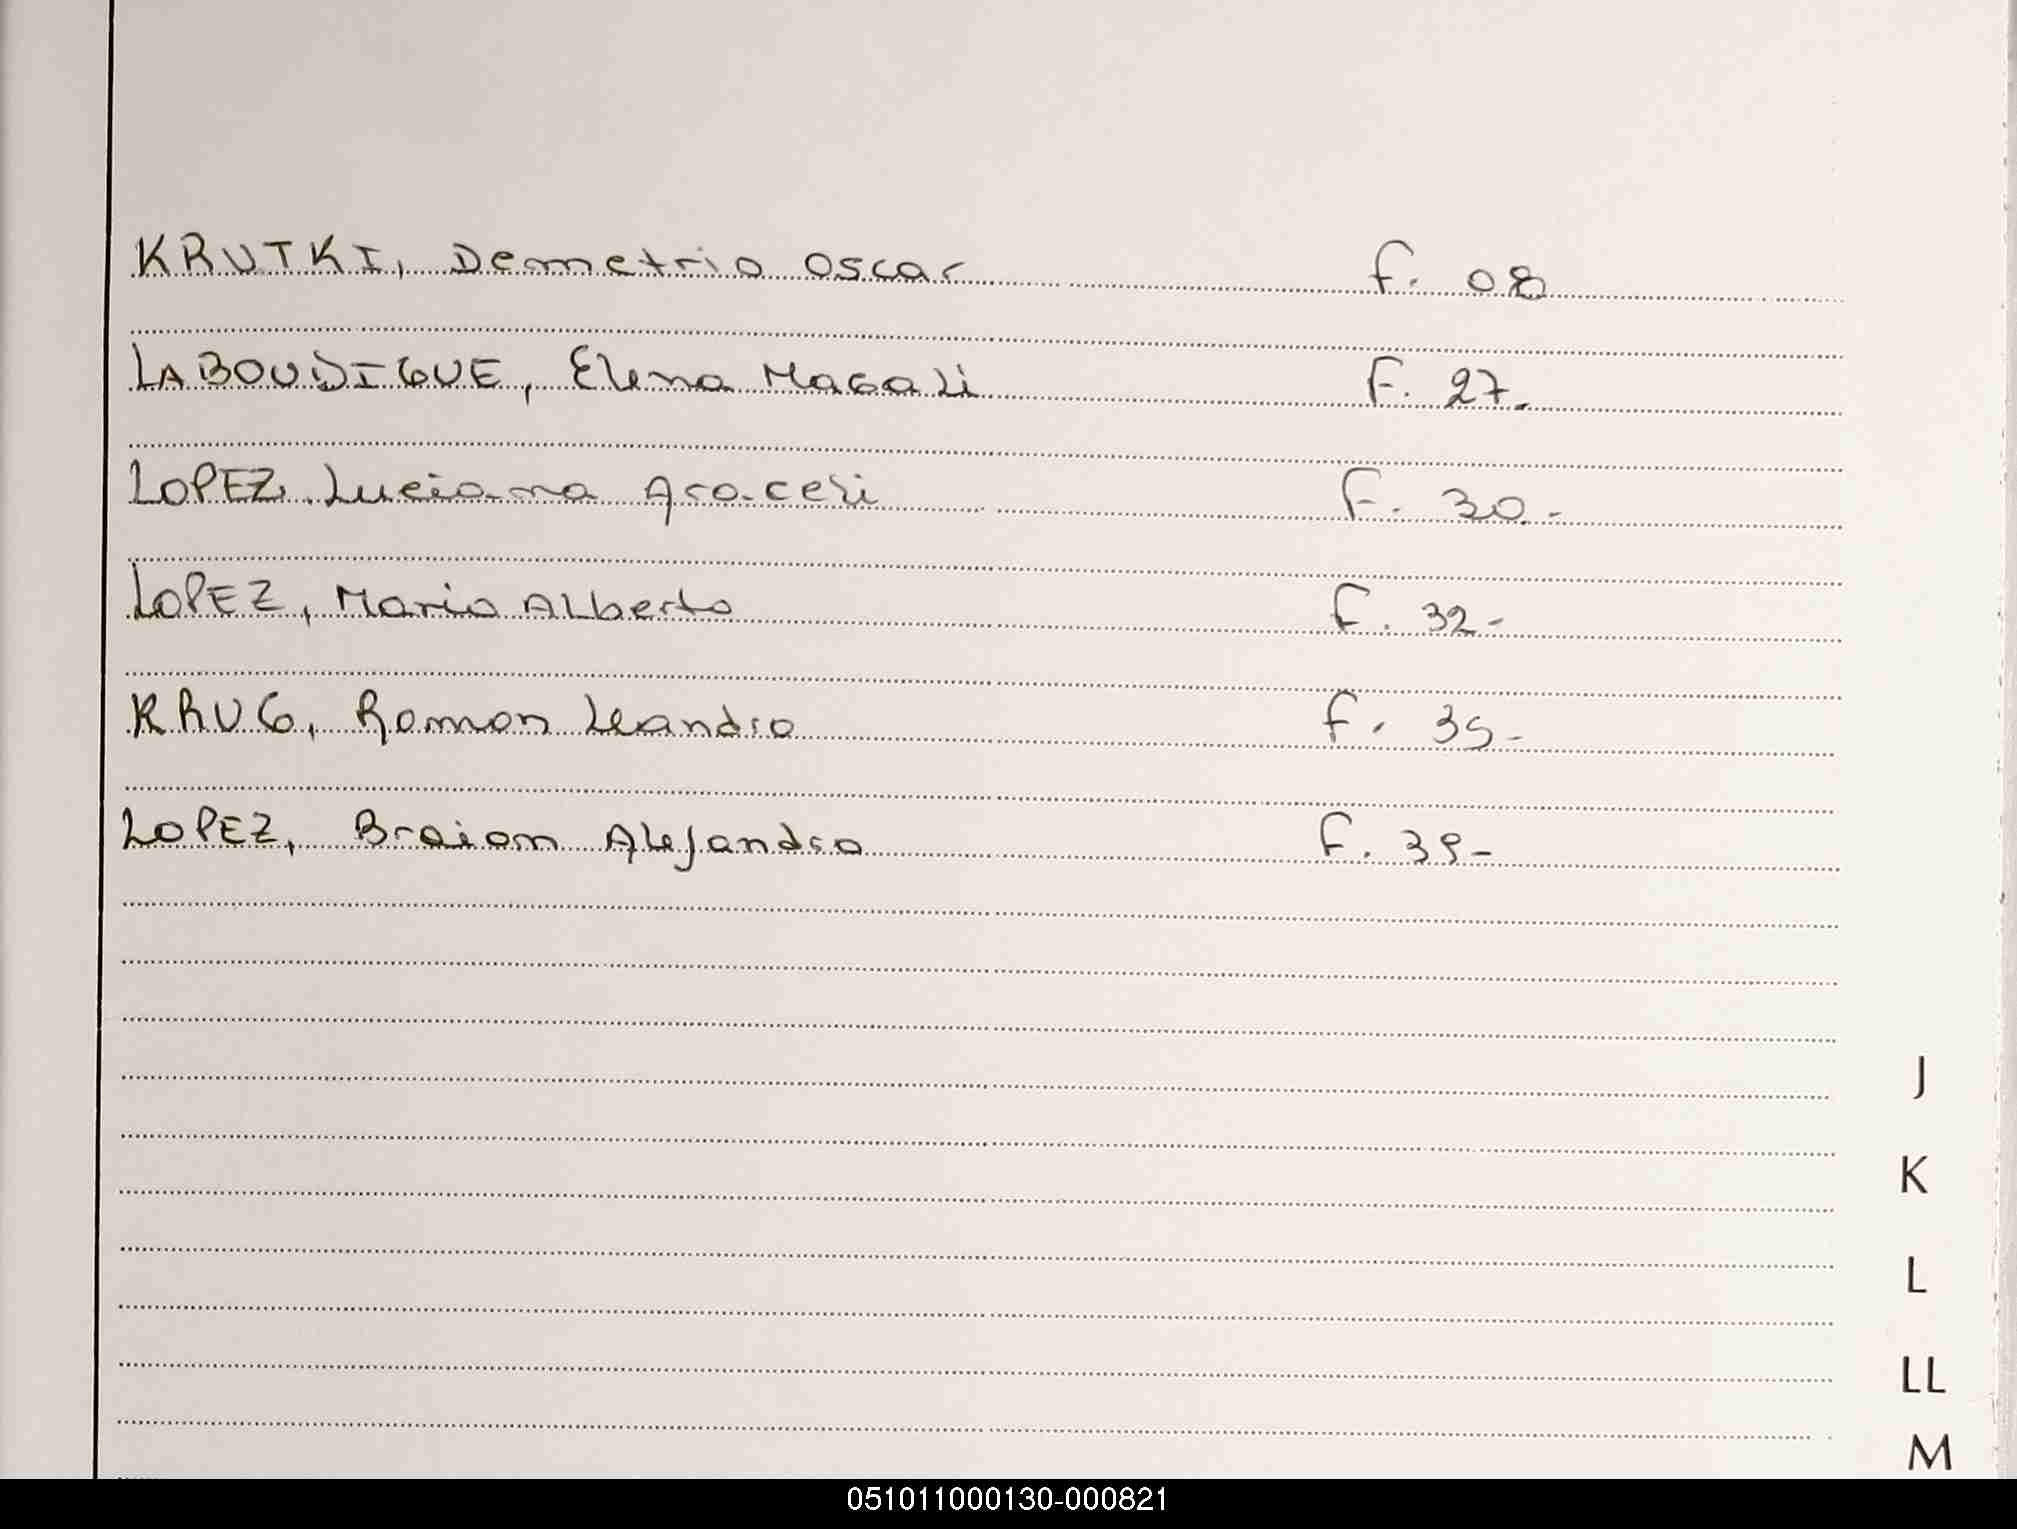 KRUTKI, Demetrio Oscar F. 08
LABOUDIGUE, Elena Magali F. 27.
LOPEZ, Luciana Araceli F. 30.-
LOPEZ, Mario Alberto F. 32-
KRUG, Ramon Leandro F. 35-
LOPEZ, Braian Alejandro F. 39-
J
K
L
LL
M
051011000130-000821